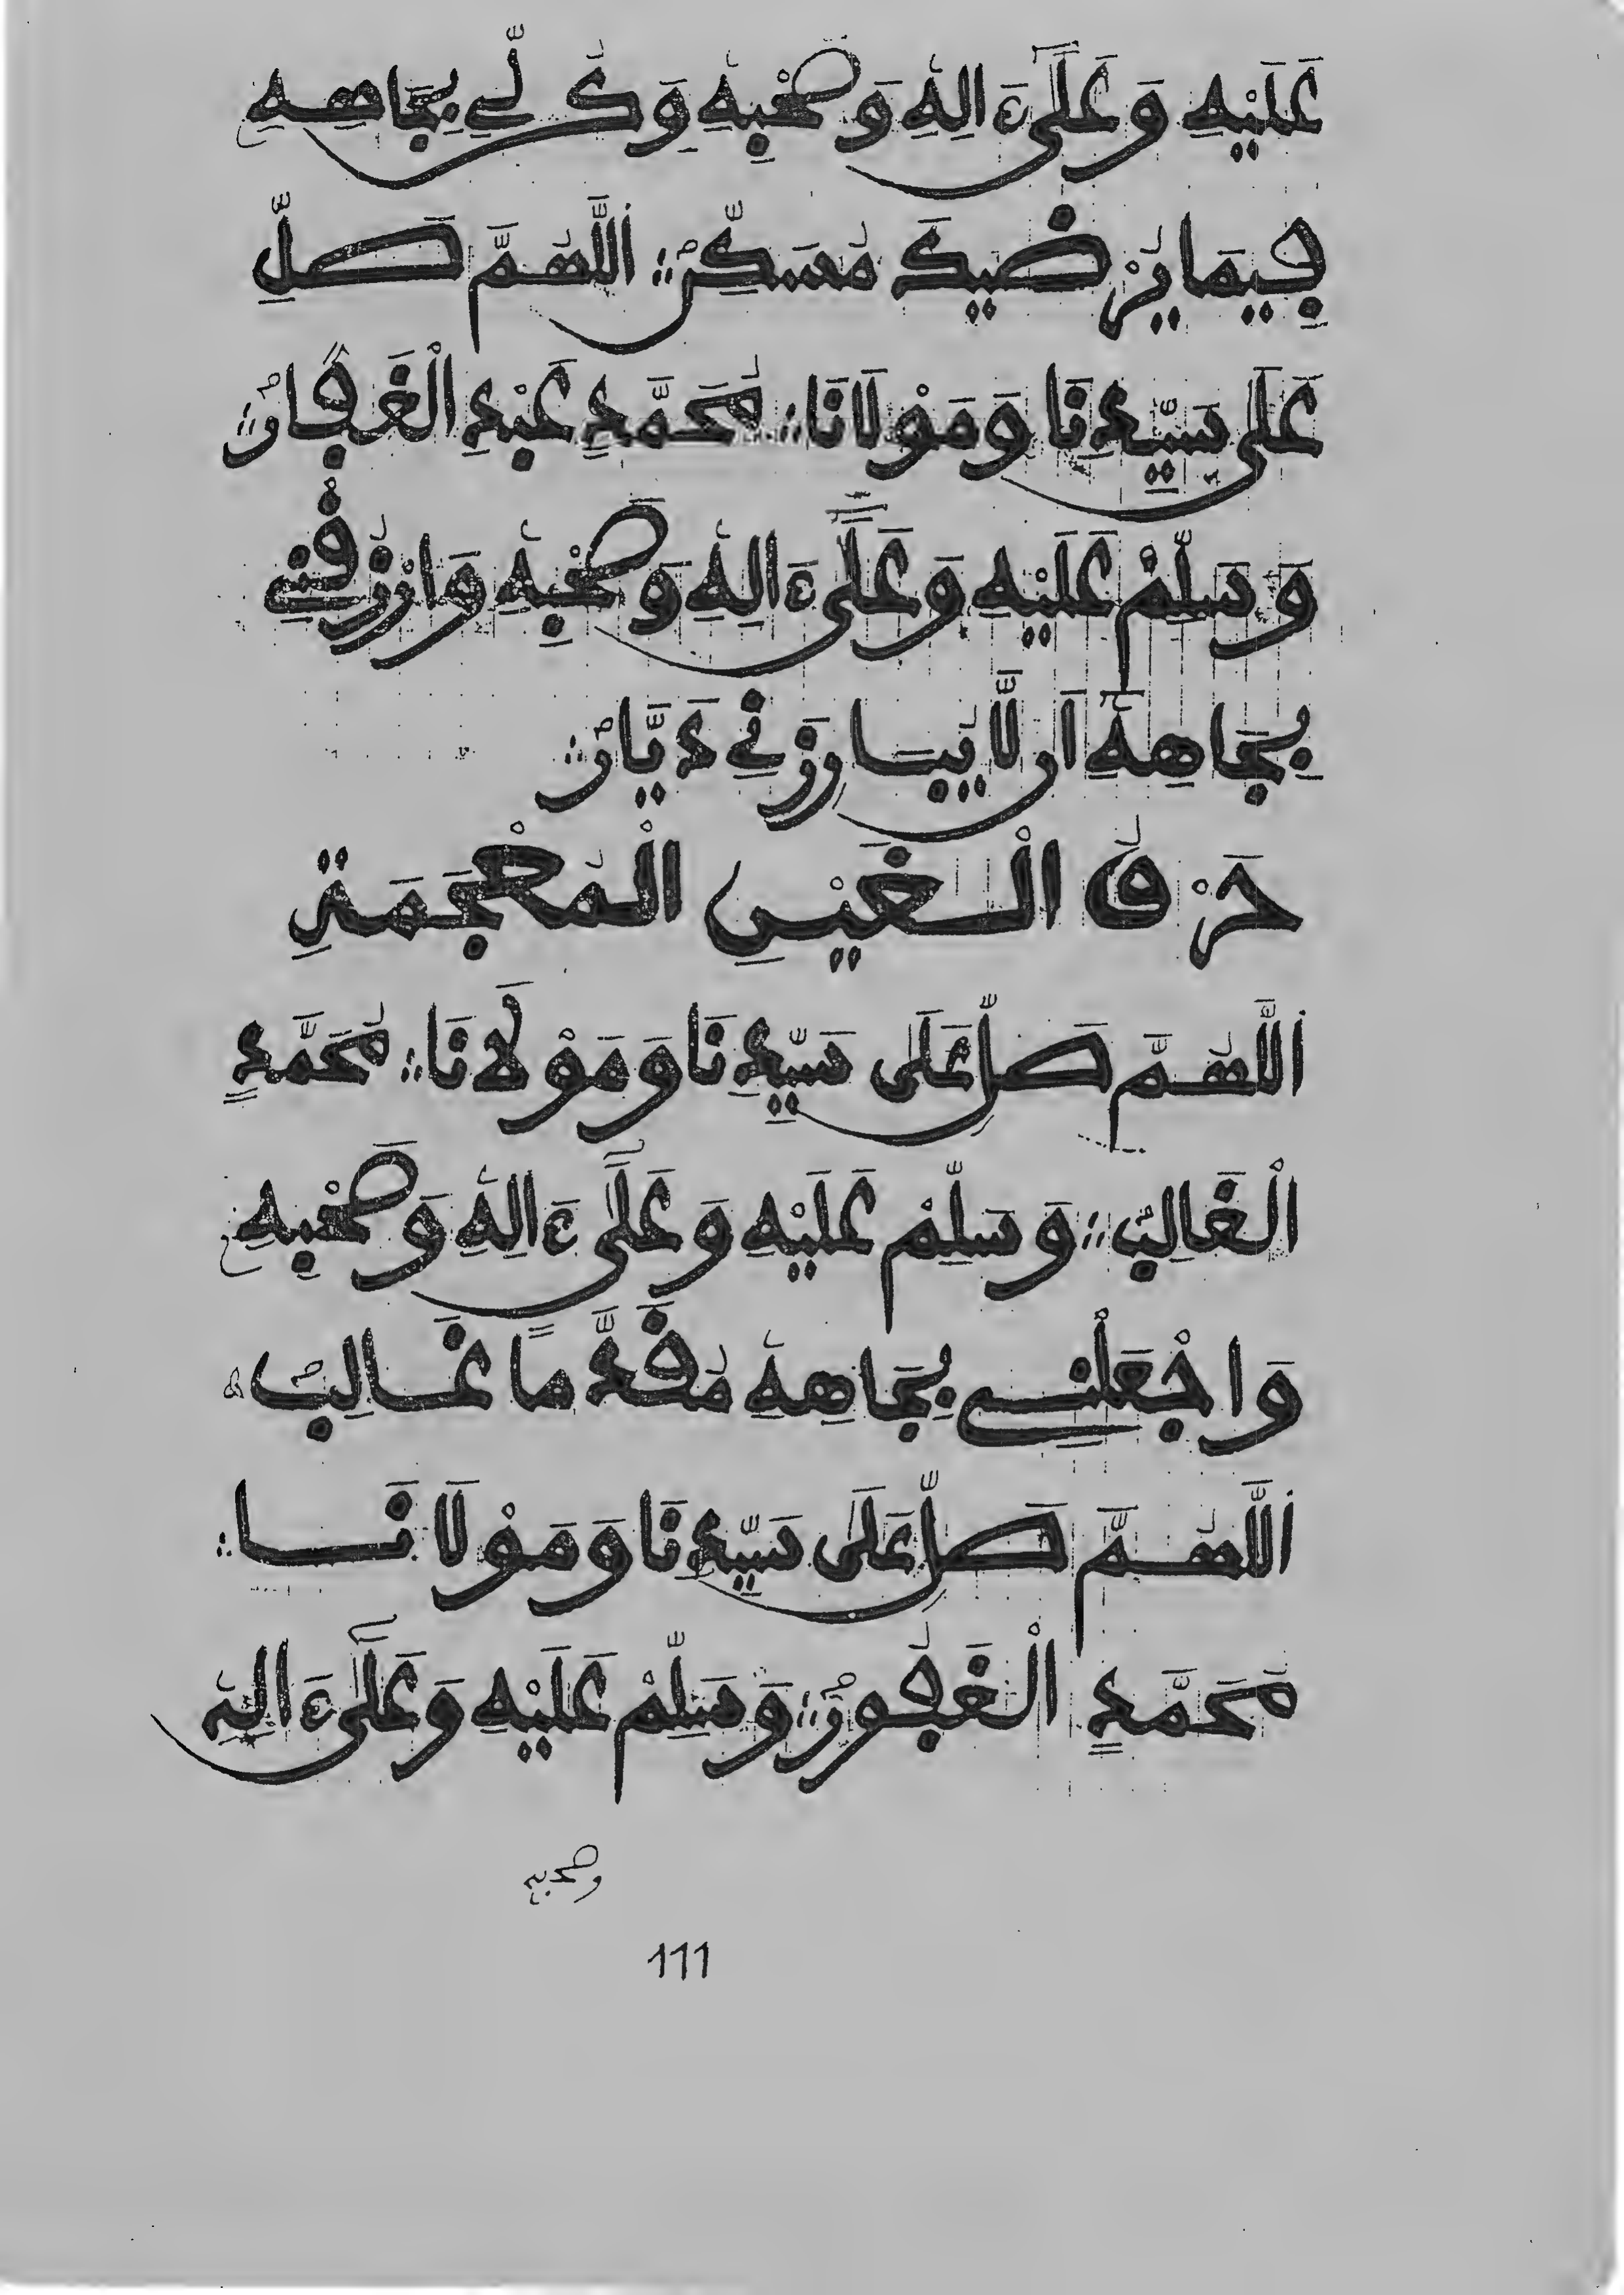 عَلَيْهِ وَعَلَىٰٓ ءَالِهِۦ وَصَحْبِهِۦ وَكُن لِّے بِجَاهِهِۦ
فِيمَا يُرْضِيكَ مُسَكِّنُ ؛ اَللَّهُمَّ صَلِّ
عَلَىٰ سَيِّدِنَا وَمَوْلَانَا ؛ مُحَمَّدٍ عَبْدِ الْغَفَّارُ ؛
وَسَلِّمْ عَلَيْهِ وَعَلَىٰٓ ءَالِهِۦ وَصَحْبِهِۦ وَارْزُقْنِے
بِجَاهِهِۦٓ أَن لَّا يُسَاوَنِے دَيَّارُ ؛
حَرْفُ الْغَيْنِ الْمُعْجَمَةِ
اَللَّهُمَّ صَلِّ عَلَىٰ سَيِّدِنَا وَمَوْلَانَا ؛ مُحَمَّدٍ
الْغَالِبُ ؛ وَسَلِّمْ عَلَيْهِ وَعَلَىٰٓ ءَالِهِۦ وَصَحْبِهِۦ
وَاجْعَلْنِے بِجَاهِهِۦ مُقَدَّمًا غَالِبُ
اَللَّهُمَّ صَلِّ عَلَىٰ سَيِّدِنَا وَمَوْلَانَا ؛
مُحَمَّدٍ الْغَفُورُ ؛ وَسَلِّمْ عَلَيْهِ وَعَلَىٰٓ ءَالِهِۦ
وصحبه
111